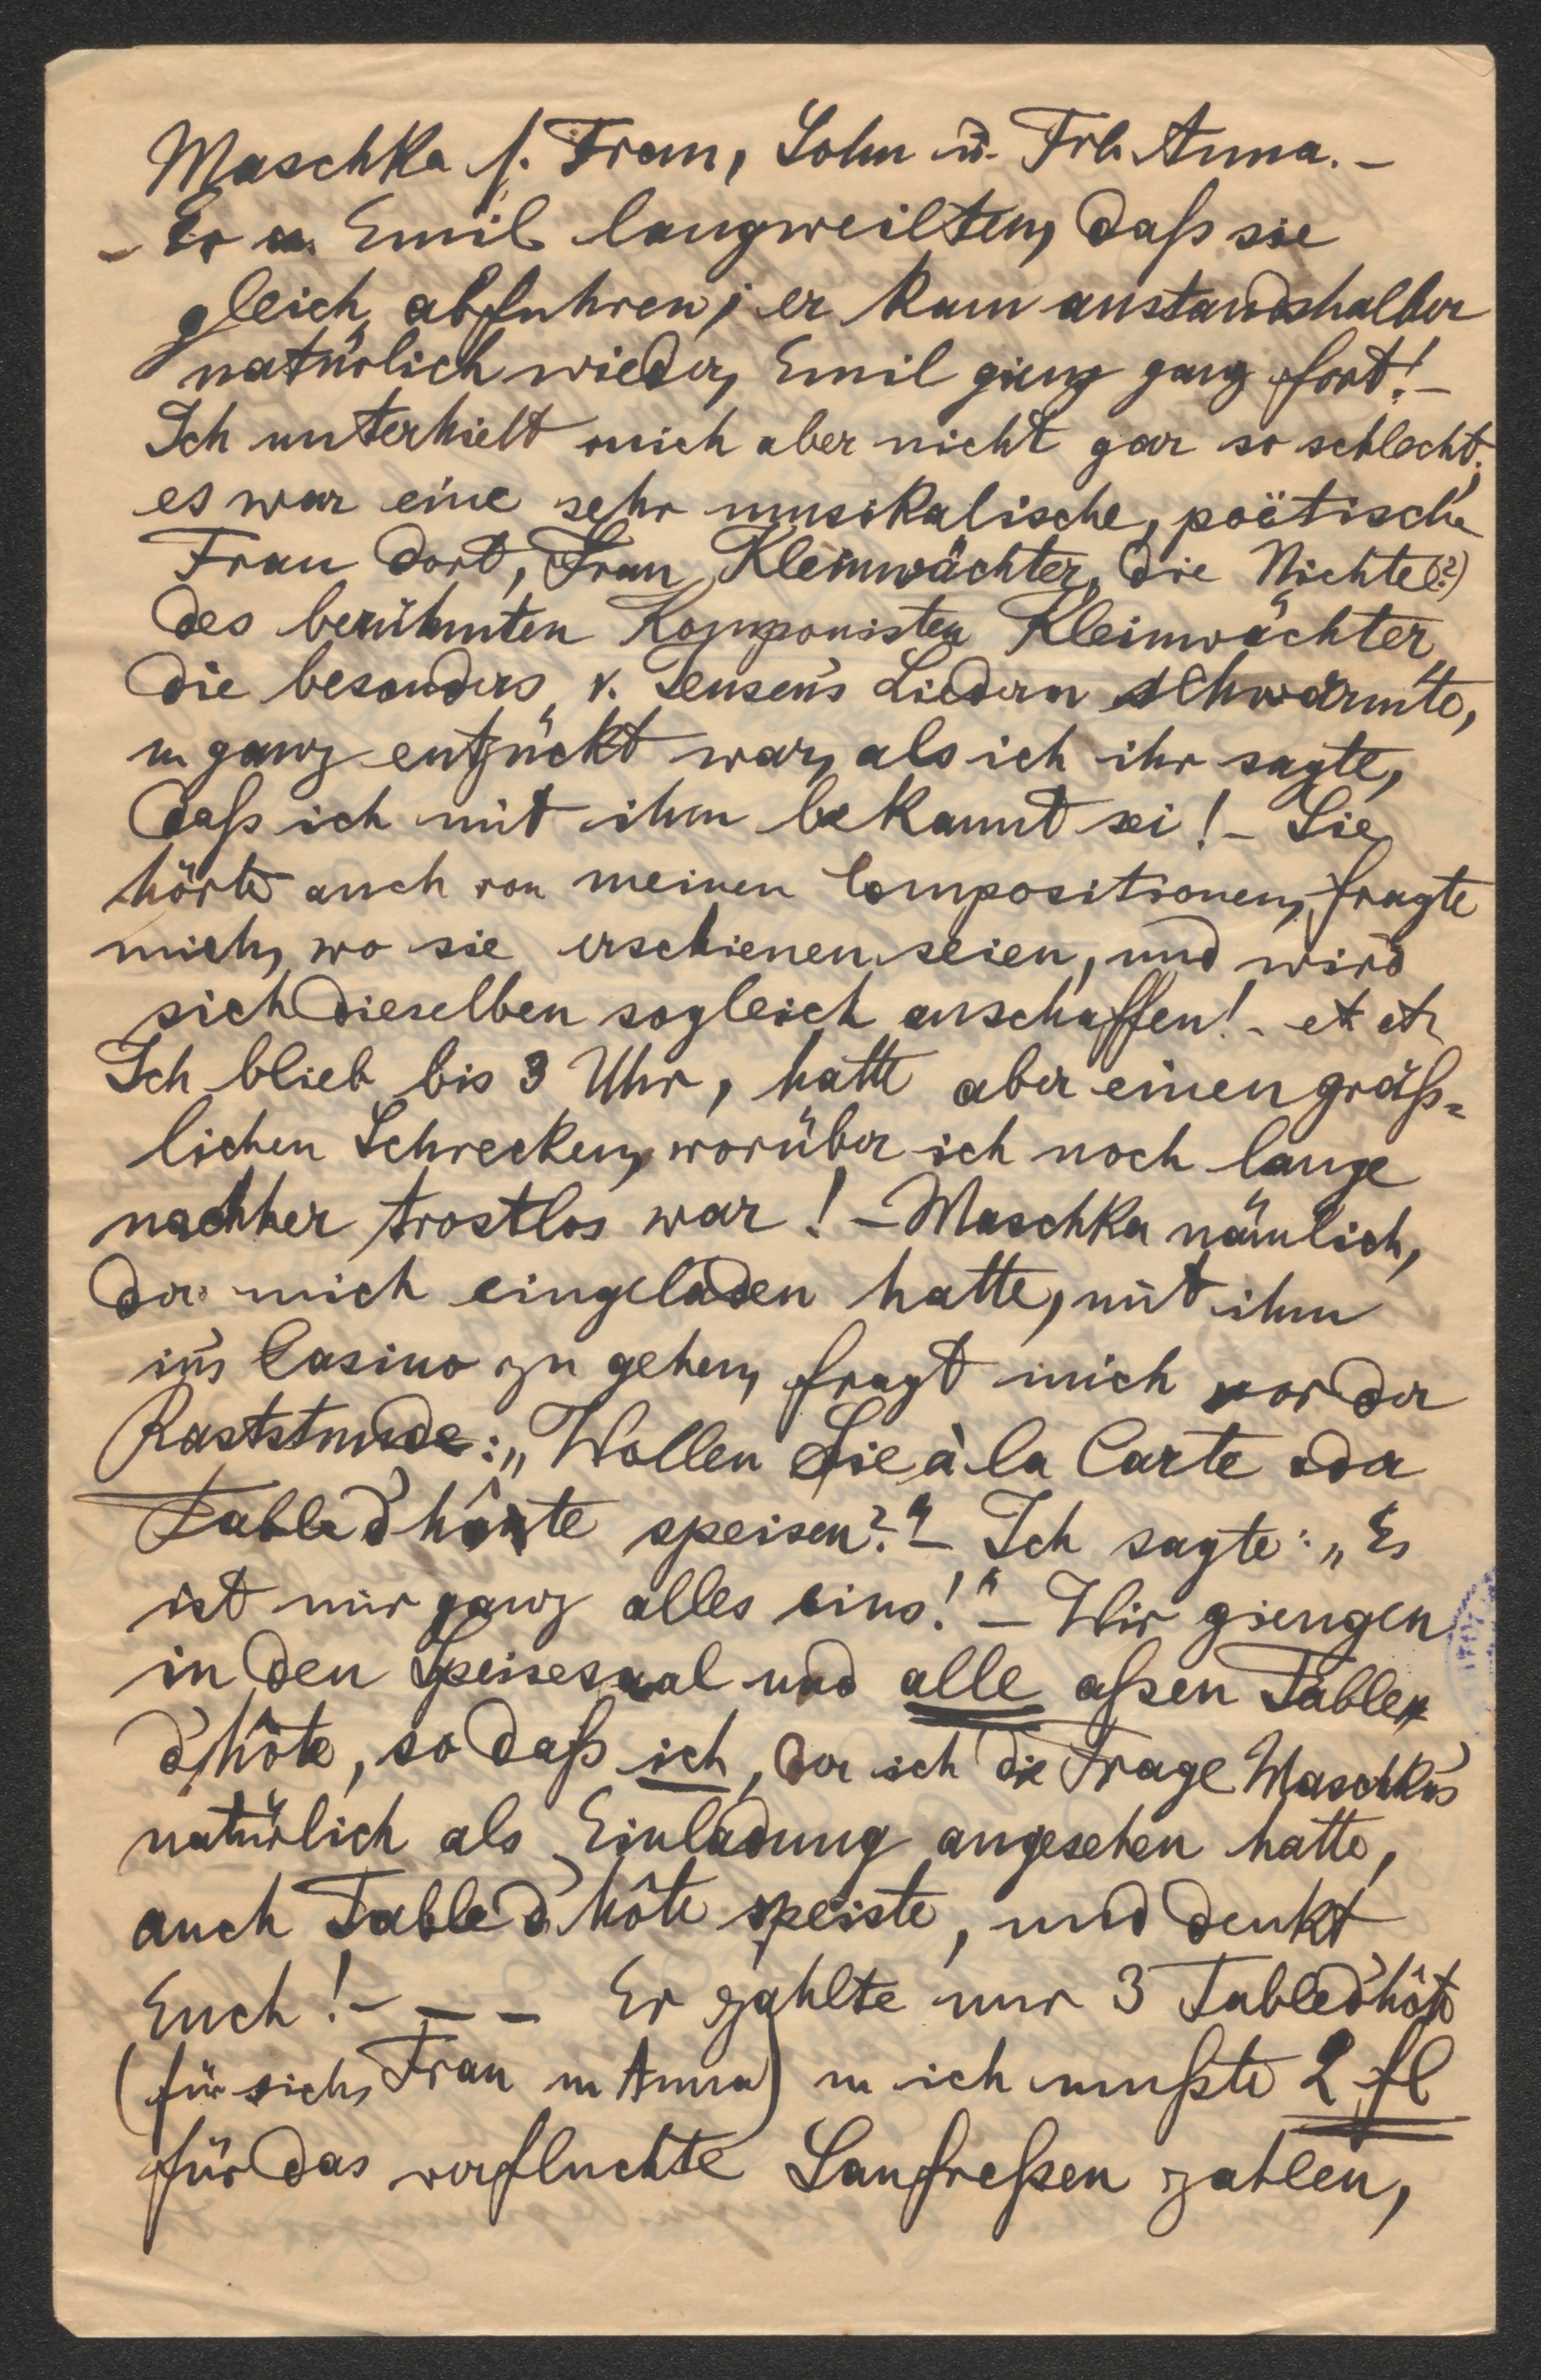 Maschka s. Frau, Sohn u. Frl. Anna. –
– Er u. Emil langweilten, daß sie
gleich abfuhren; er kam anstandshalber
natürlich wieder, Emil gieng ganz fort! –
Ich unterhielt mich aber nicht gar so schlecht;
es war eine sehr musikalische, poëtische
Frau dort, Frau Kleinwächter, die Nichte (?)
des berühmten Komponisten Kleinwächter,
die besonders v. Jensen's Liedern schwärmte,
u ganz entzückt war, als ich ihr sagte,
daß ich mit ihm bekannt sei! – Sie
hörte auch von meinen Compositionen, fragte
mich, wo sie erschienen seien, und wird
sich dieselben sogleich anschaffen! – et et
Ich blieb bis 3 Uhr, hatte aber einen gräß=
lichen Schrecken, worüber ich noch lange
nachher trostlos war! – Maschka nämlich,
der mich eingeladen hatte, mit ihm
in's Casino zu gehen, fragt mich vor der
Raststunde: „Wollen Sie à la Carte oder
Table d'hôte speisen?" – Ich sagte: „Es
ist mir ganz alles eins!" – Wir giengen
in den Speisesaal und alle aßen Table
d'hôte, so daß ich, der ich die Frage Maschka's
natürlich als Einladung angesehen hatte,
auch Table d'hôte speiste, und denkt
Euch! – – – Er zahlte nur 3 Table d'hôte
(für sich, Frau u Anna) u ich mußte 2 fl
für das verfluchte Saufreßen zahlen,